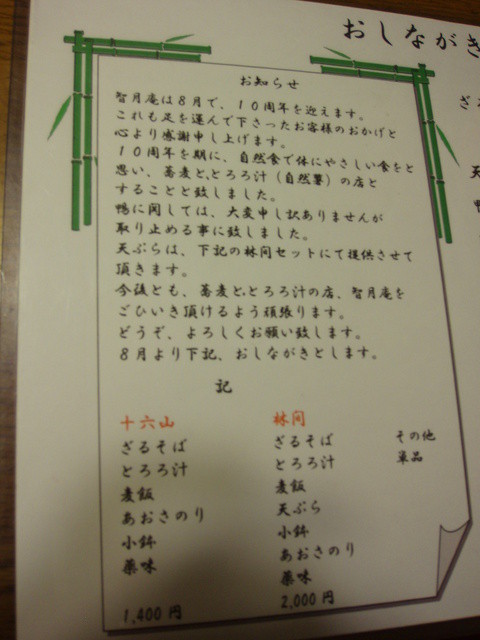 おしながき
お知らせ
智月庵は８月で、１０周年を迎えます。
これも足を運んで下さったお客様のおかげと
心より感謝申し上げます。
１０周年を期に、自然食で体にやさしい食をと
思い、蕎麦と、とろろ汁（自然薯）の店と
することと致しました。
鴨に関しては、大変申し訳ありませんが
取り止める事に致しました。
天ぷらは、下記の林間セットにて提供させて
頂きます。
今後とも、蕎麦と、とろろ汁の店、智月庵を
ごひいき頂けるよう頑張ります。
どうぞ、よろしくお願い致します。
８月より下記、おしながきとします。
記
十六山
ざるそば
とろろ汁
麦飯
あおさのり
小鉢
薬味
1,400 円
林间
ざるそば
とろろ汁
麦飯
天ぷら
小鉢
あおさのり
薬味
2,000 円
その他
単品
ざ
天
鴨